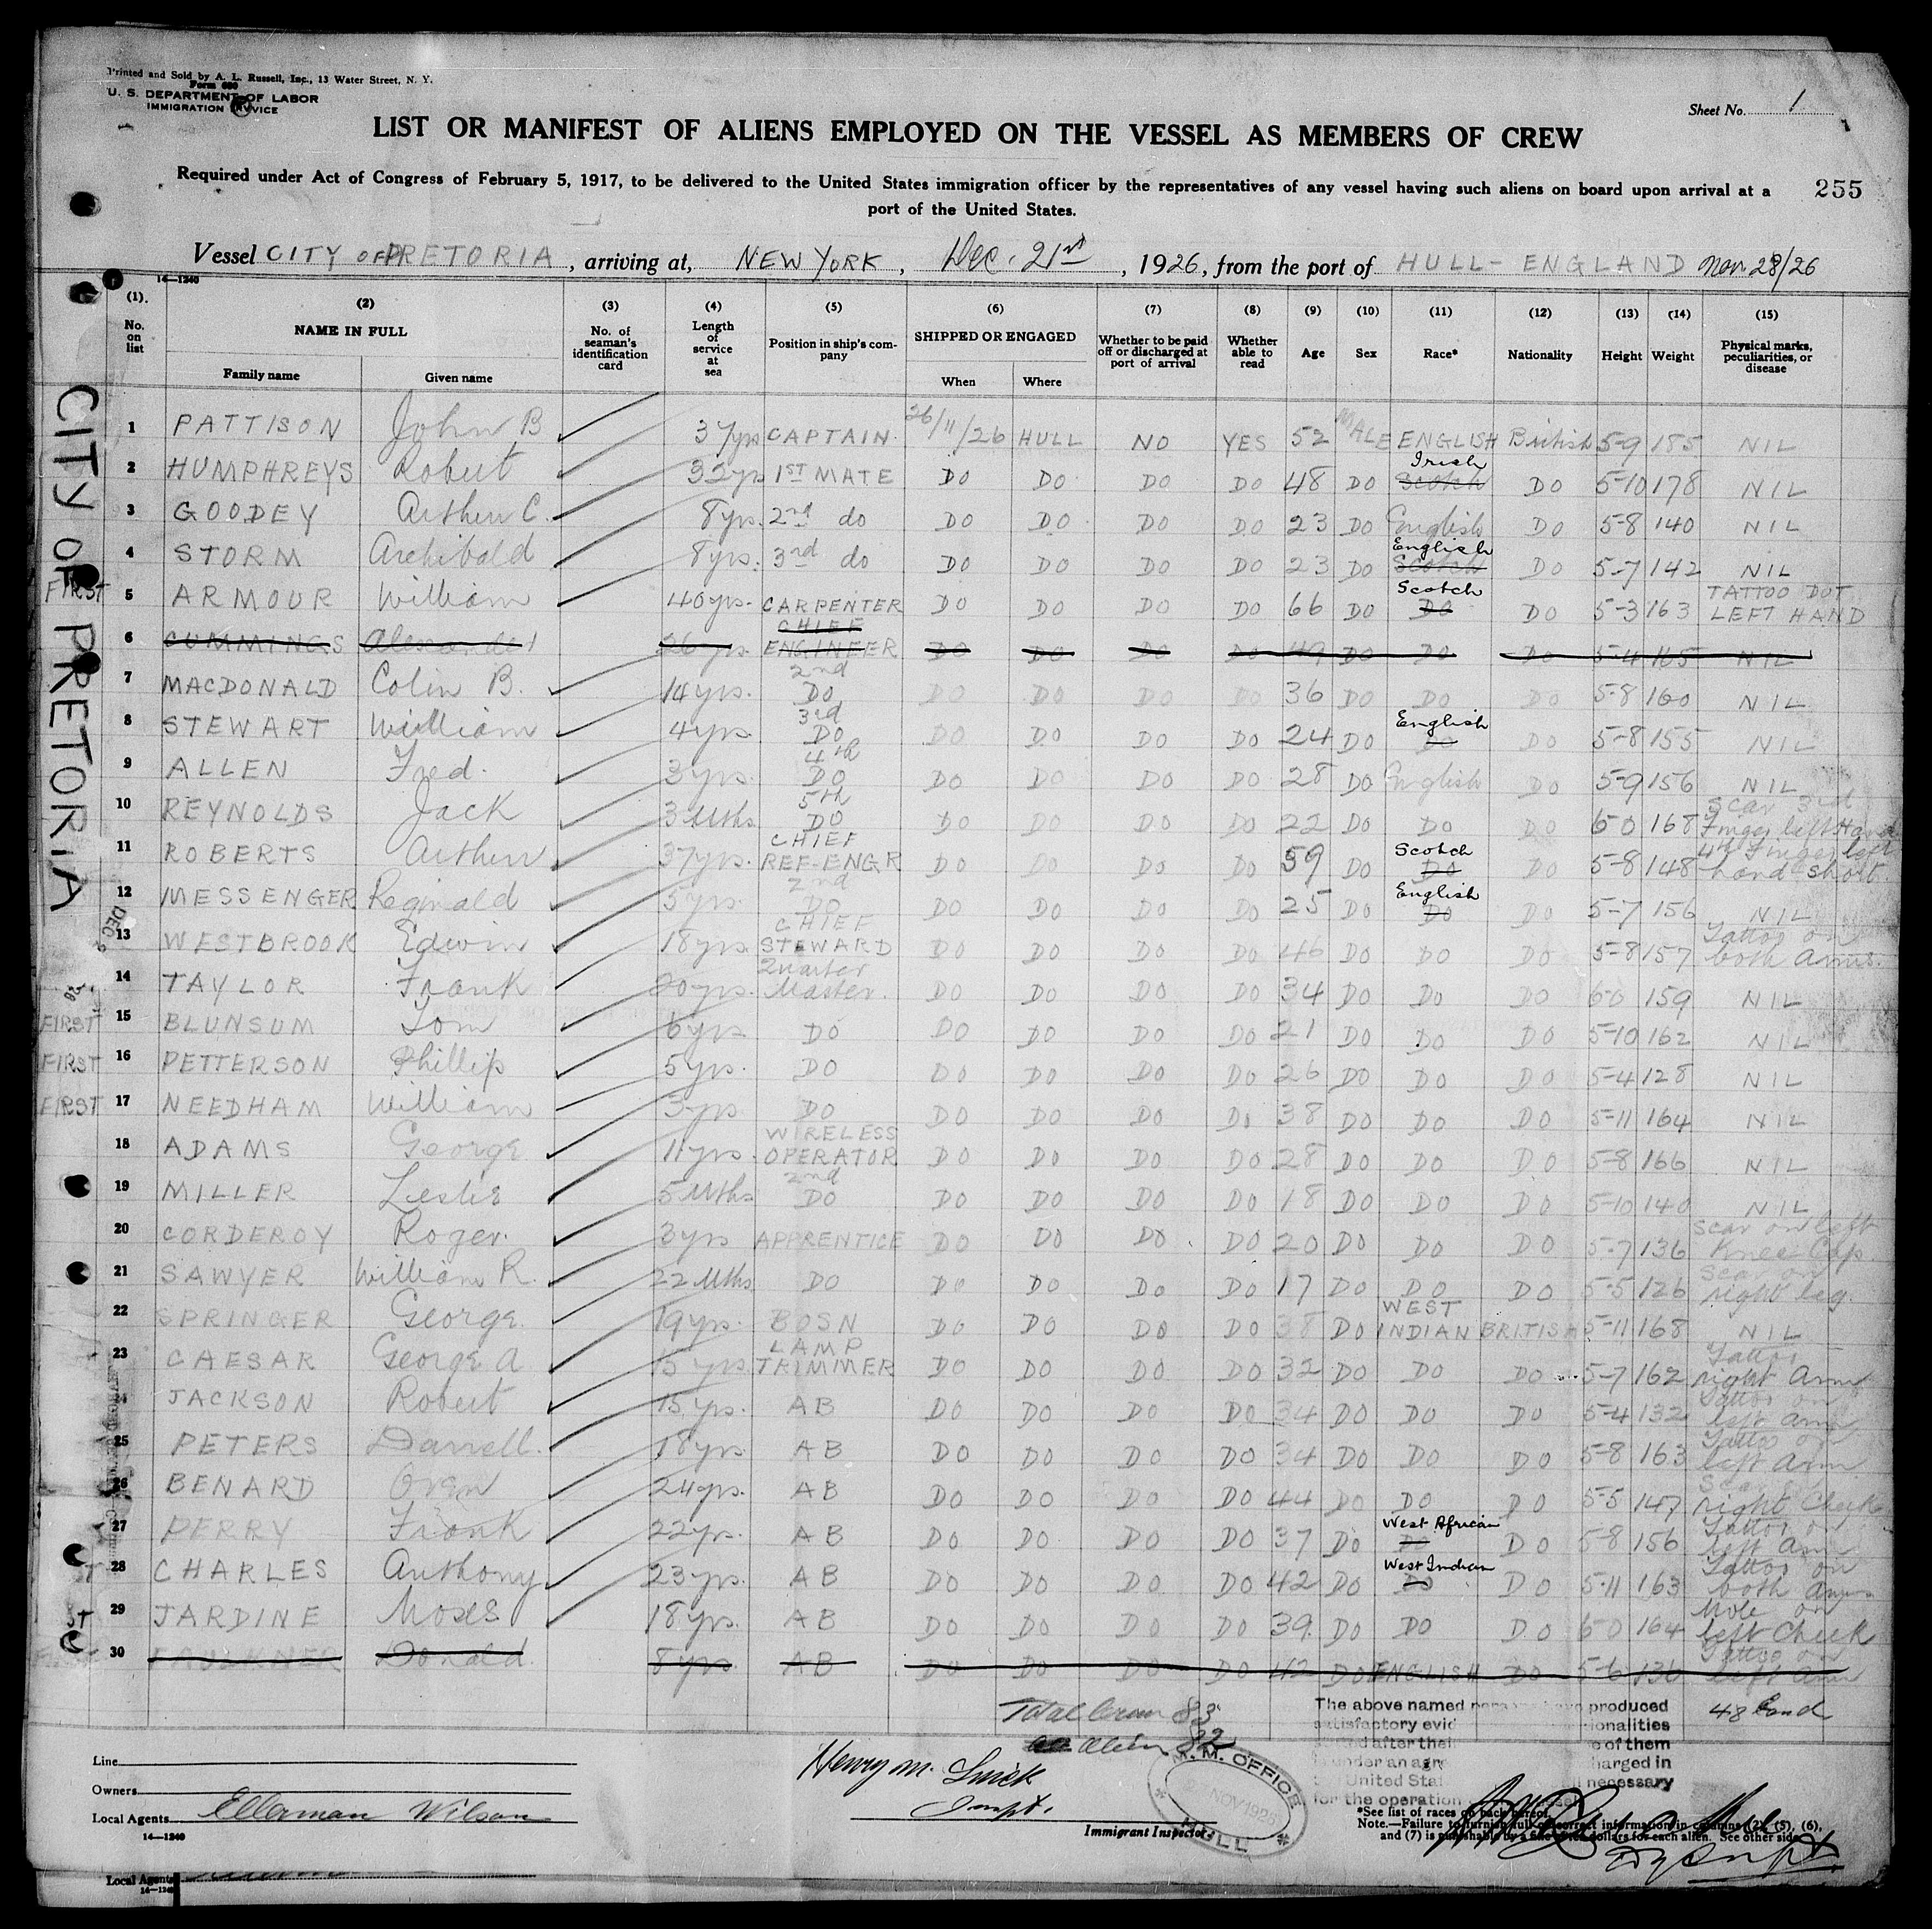 Printed and Sold by A. L. Russell, Inc., 13 Water Street, N. Y.
Form 680
U. S. DEPARTMENT OF LABOR
IMMIGRATION SERVICE
Sheet No. 1
LIST OR MANIFEST OF ALIENS EMPLOYED ON THE VESSEL AS MEMBERS OF CREW
Required under Act of Congress of February 5, 1917, to be delivered to the United States immigration officer by the representatives of any vessel having such aliens on board upon arrival at a
port of the United States.
255
Vessel CITY OF PRETORIA, arriving at, NEW YORK, Dec. 21st, 1926, from the port of HULL - ENGLAND Nov. 28/26
14—1240
(1). No. on list
(2) NAME IN FULL Family name Given name
(3) No. of seaman's identification card
(4) Length of service at sea
(5) Position in ship's company
(6) SHIPPED OR ENGAGED When Where
(7) Whether to be paid off or discharged at port of arrival
(8) Whether able to read
(9) Age
(10) Sex
(11) Race*
(12) Nationality
(13) Height
(14) Weight
(15) Physical marks, peculiarities, or disease
CITY OF PRETORIA
1 PATTISON John B 37yrs CAPTAIN. 26/11/26 HULL NO YES 52 MALE ENGLISH British 5-9 185 NIL
2 HUMPHREYS Robert 32yrs 1ST MATE DO DO DO DO 48 DO Scotch Irish DO 5-10 178 NIL
3 GOODEY Arthur C. 8yrs. 2nd do DO DO DO DO 23 DO English DO 5-8 140 NIL
4 STORM Archibald 8yrs. 3rd do DO DO DO DO 23 DO Scotch English DO 5-7 142 NIL
FIRST 5 ARMOUR William 40yrs. CARPENTER DO DO DO DO 66 DO DO Scotch DO 5-3 163 TATTOO DOT LEFT HAND
6 CUMMINGS Alexander 26yrs. CHIEF ENGINEER DO DO DO DO 49 DO DO DO 5-4 165 NIL
7 MACDONALD Colin B. 14yrs. 2nd DO DO DO DO DO 36 DO DO DO 5-8 160 NIL
8 STEWART William 4yrs. 3rd DO DO DO DO DO 24 DO DO English DO 5-8 155 NIL
9 ALLEN Fred. 3yrs. 4th DO DO DO DO DO 28 DO English DO 5-9 156 NIL
10 REYNOLDS Jack 3 Mths 5th DO DO DO DO DO 22 DO DO DO 6-0 168 Scar 3rd Finger left Hand
11 ROBERTS Arthur 37yrs. CHIEF REF-ENGR DO DO DO DO 59 DO DO Scotch DO 5-8 148 4th Finger left hand short.
12 MESSENGER Reginald 5yrs. 2nd DO DO DO DO DO 25 DO DO English DO 5-7 156 NIL
13 WESTBROOK Edwin 18yrs. CHIEF STEWARD DO DO DO DO 46 DO DO DO 5-8 157 Tattoo on both Arms.
14 TAYLOR Frank 20yrs. Quarter Master. DO DO DO DO 34 DO DO DO 6-0 159 NIL
FIRST 15 BLUNSUM Tom 6yrs. DO DO DO DO DO 21 DO DO DO 5-10 162 NIL
FIRST 16 PETTERSON Phillip 5yrs. DO DO DO DO DO 26 DO DO DO 5-4 128 NIL
FIRST 17 NEEDHAM William 3yrs DO DO DO DO DO 38 DO DO DO 5-11 164 NIL
18 ADAMS George 11yrs. WIRELESS OPERATOR DO DO DO DO 28 DO DO DO 5-8 166 NIL
19 MILLER Leslie 5 Mths 2nd DO DO DO DO DO 18 DO DO DO 5-10 140 NIL
20 CORDEROY Roger. 3yrs APPRENTICE DO DO DO DO 20 DO DO DO 5-7 136 Scar on left Knee Cap
21 SAWYER William R. 22 Mths DO DO DO DO DO 17 DO DO DO 5-5 126 Scar on right leg.
22 SPRINGER George. 19yrs. BOSN DO DO DO DO 38 DO WEST INDIAN BRITISH 5-11 168 NIL
23 CAESAR George A 15 yrs. LAMP TRIMMER DO DO DO DO 32 DO DO DO 5-7 162 Tattoo right Arm
24 JACKSON Robert 15yrs. AB DO DO DO DO 34 DO DO DO 5-4 132 Tattoo on left Arm
25 PETERS Darrell. 18yrs. AB DO DO DO DO 34 DO DO DO 5-8 163 Tattoo on left Arm
26 BENARD Oven 24yrs. AB DO DO DO DO 44 DO DO DO 5-5 147 Scar right Cheek
27 PERRY Frank 22yrs. AB DO DO DO DO 37 DO DO West African DO 5-8 156 Tattoo on left Arm
28 CHARLES Anthony 23yrs. AB DO DO DO DO 42 DO DO West Indian DO 5-11 163 Tattoo on both Arms
ST 29 JARDINE Moses 18yrs. AB DO DO DO DO 39 DO DO DO 6-0 164 Mole on left Cheek
30 FAULKNER Donald 8yrs AB DO DO DO DO 42 DO ENGLISH DO 5-6 136 Tattoo on left Arm
Total Crew 83
Alien 82
48 Cond
The above named produced
satisfactory
of them
under an
harged in
United Sta necessary
for the operation
Line
Owners
Local Agents Ellerman Wilson
14—1240
Henry M.
Inspt.
Immigrant Inspector.
M. M. OFFICE
NOV 1926
HULL
*See list of races on back hereof.
Note.—Failure to furnish full or correct information in columns (2), (5), (6),
and (7) is punishable by a fine of ten dollars for each alien. See other side.
Local Agents
14—1240